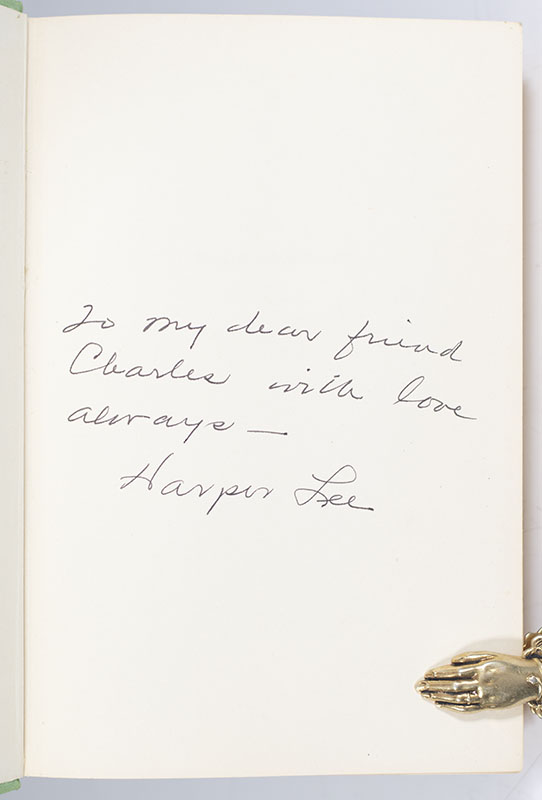 To my dear friend
Charles with love
always —
Harper Lee